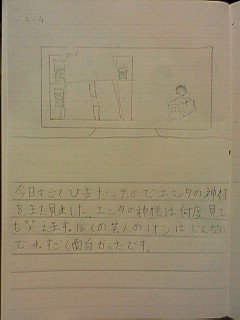 4.4
今日すごくひまだったのでエンタの神様
をまた見ました。エンタの神様は何度見て
も笑えます。ぼくの芸人の
でもすごく面白かったです。